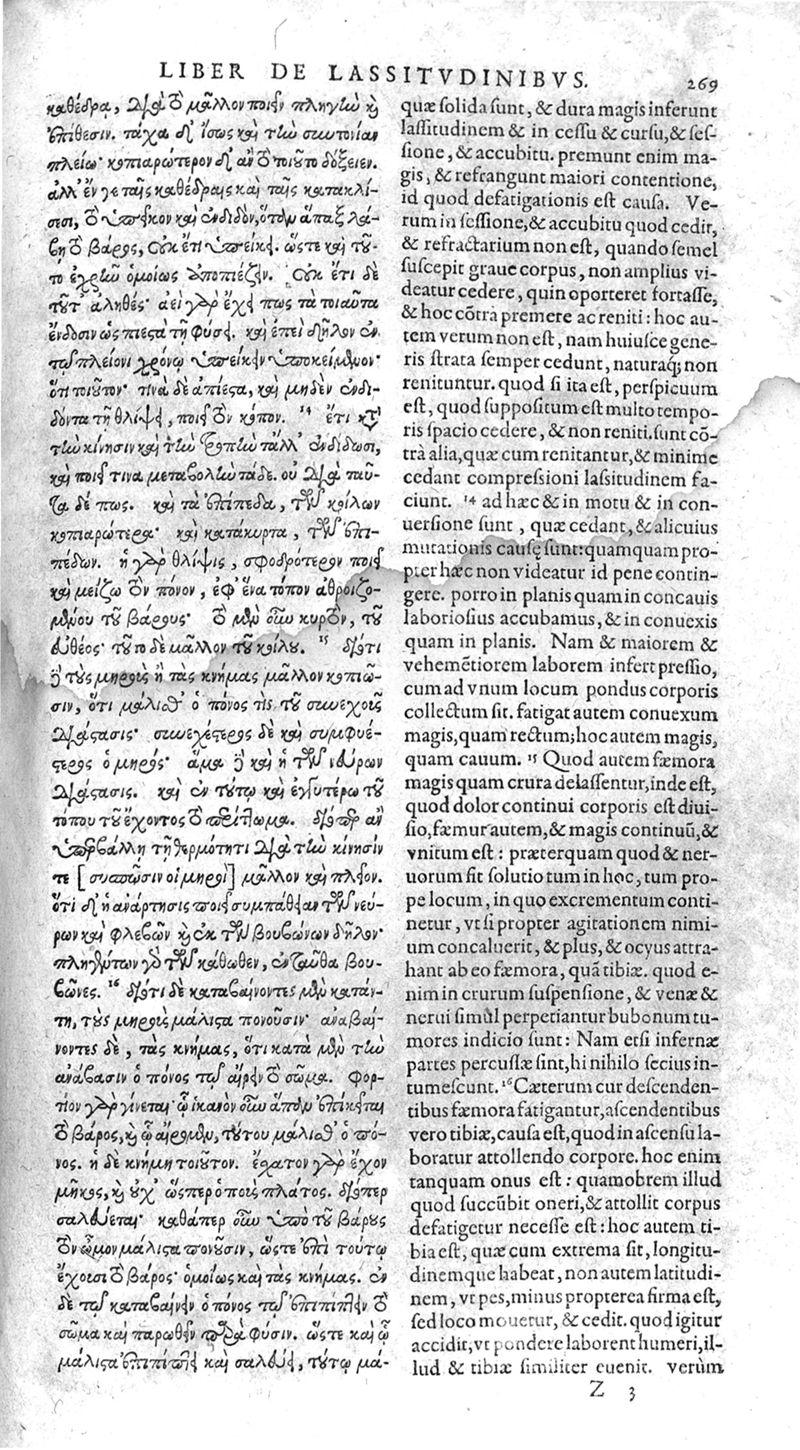 LIBER DE LASSITVDINIBVS.
269
καθέδρα, διὰ τὸ μᾶλλον ποιεῖν πληγὴν κὴ
ἐπίθεσιν. τάχα δ' ἴσως καὶ τὴν συντονίαν
πλείω· κοπιαρώτερον δ' ἂν τὸ τοιοῦτο δόξειεν.
ἀλλ' ἔν γε ταῖς καθέδραις καὶ ταῖς κατακλί-
σεσι, τὸ ὑπεῖκον καὶ ἐνδιδὸν, ὅταν ἅπαξ λά-
βῃ τὸ βάρος, οὐκ ἔτι ὑπείκει. ὥστε καὶ τοῦ-
το ἐχρῆν ὁμοίως ἀποπιέζειν. οὐκ ἔτι δὲ
τοῦτ' ἀληθές· ἀεὶ γὰρ ἔχει πως τὰ τοιαῦτα
ἔνδοσιν ὡς πιεστὰ τῇ φύσει. καὶ ἐπεὶ δῆλον ἐν
τῷ πλείονι χρόνῳ ὑπείκειν ὑποκείμενον·
ὅτι τοιοῦτον· τινὰ δὲ ἀπίεστα, καὶ μηδὲν ἐνδι-
δόντα τῇ θλίψει, ποιεῖ τὸν κόπον. 14 ἔτι κατὰ
τὴν κίνησιν καὶ τὴν τροπὴν τἄλλ' ἐνδίδωσι,
καὶ ποιεῖ τινα μεταβολὴν τάδε. οὐ διὰ ταῦ-
τα δέ πως. καὶ τὰ ἐπίπεδα, τῶν κοίλων
κοπιαρώτερα· καὶ κατάκυρτα, τῶν ἐπι-
πέδων. ἡ γὰρ θλίψις, σφοδρότερον ποιεῖ
καὶ μείζω τὸν πόνον, ἐφ' ἕνα τόπον ἀθροιζο-
μένου τοῦ βάρους· τὸ μὲν οὖν κυρτὸν, τοῦ
εὐθέος· τοῦτο δὲ μᾶλλον τοῦ κοίλου. 15 διότι
δὲ τοὺς μηροὺς ἢ τὰς κνήμας μᾶλλον κοπιῶ-
σιν, ὅτι μάλισθ' ὁ πόνος τῆς τοῦ συνεχοῦς
διάστασις· συνεχέστερος δὲ καὶ συμφυέ-
στερος ὁ μηρός· ἅμα δὲ καὶ ἡ τῶν νεύρων
διάστασις. καὶ ἐν τούτῳ καὶ ἐγγυτέρω τοῦ
τόπου τοῦ ἔχοντος τὸ περίττωμα. διόπερ ἂν
ὑπερβάλλῃ τῇ θερμότητι διὰ τὴν κίνησίν
τε [συσπῶσιν οἱ μηροὶ] μᾶλλον καὶ πλεῖον.
ὅτι δ' ἡ ἀνάρτησις ποιεῖ συμπάθειαν τῶν νεύ-
ρων καὶ φλεβῶν κὴ ἐκ τῶν βουβώνων δῆλον·
πληγέντων γὰρ τῶν κάτωθεν, ἐνταῦθα βου-
βῶνες. 16 διότι δὲ καταβαίνοντες μὲν κατάν-
τη, τοὺς μηροὺς μάλιστα πονοῦσιν· ἀναβαί-
νοντες δὲ, τὰς κνήμας, ὅτι κατὰ μὲν τὴν
ἀνάβασιν ὁ πόνος τῷ αἴρειν τὸ σῶμα. φορ-
τίον γὰρ γίνεται· ᾧ ἱκανὸν οὖν ἅπαν ἐπίκειται
τὸ βάρος, κὴ ᾧ αἴρομεν, τούτου μάλισθ' ὁ πό-
νος. ἡ δὲ κνήμη τοιοῦτον. ἔσχατον γὰρ ἔχον
μῆκος, κὴ οὐχ' ὥσπερ ὁ ποὺς πλάτος. διόπερ
σαλεύεται· καθάπερ οὖν ὑπὸ τοῦ βάρους
τὸν ὦμον μάλιστα πονοῦσιν, ὥστε ἐπὶ τούτῳ
ἔχοισι τὸ βάρος· ὁμοίως καὶ τὰς κνήμας. ἐν
δὲ τῷ καταβαίνειν ὁ πόνος τῷ ἐπιπίπτειν τὸ
σῶμα καὶ παρωθεῖν παρὰ φύσιν. ὥστε καὶ ᾧ
μάλιστα ἐπιπίπτει καὶ σαλεύει, τούτῳ μά-
quæ solida sunt, & dura magis inferunt
lassitudinem & in cessu & cursu, & ses-
sione, & accubitu. premunt enim ma-
gis, & refrangunt maiori contentione,
id quod defatigationis est causa. Ve-
rum in sessione, & accubitu quod cedit,
& refractarium non est, quando semel
suscepit graue corpus, non amplius vi-
deatur cedere, quin oporteret fortasse,
& hoc cōtra premere ac reniti: hoc au-
tem verum non est, nam huiusce gene-
ris strata semper cedunt, naturaq; non
renituntur. quod si ita est, perspicuum
est, quod suppositum est multo tempo-
ris spacio cedere, & non reniti. sunt cō-
trà alia, quæ cum renitantur, & minime
cedant compressioni lassitudinem fa-
ciunt. 14 ad hæc & in motu & in con-
uersione sunt, quæ cedant, & alicuius
mutationis causę sunt: quamquam pro-
pter hæc non videatur id pene contin-
gere. porro in planis quam in concauis
laboriosius accubamus, & in conuexis
quam in planis. Nam & maiorem &
vehemētiorem laborem infert pressio,
cum ad vnum locum pondus corporis
collectum sit. fatigat autem conuexum
magis, quam rectum; hoc autem magis,
quam cauum. 15 Quod autem fæmora
magis quam crura delassentur, inde est,
quod dolor continui corporis est diui-
sio, fæmur autem, & magis continuū, &
vnitum est: præterquam quod & ner-
uorum sit solutio tum in hoc, tum pro-
pe locum, in quo excrementum conti-
netur, vt si propter agitationem nimi-
um concaluerit, & plus, & ocyus attra-
hant ab eo fæmora, quā tibiæ. quod e-
nim in crurum suspensione, & venæ &
nerui simùl perpetiantur bubonum tu-
mores indicio sunt: Nam etsi infernæ
partes percussæ sint, hi nihilo secius in-
tumescunt. 16 Cæterum cur descenden-
tibus fæmora fatigantur, ascendentibus
vero tibiæ, causa est, quod in ascensu la-
boratur attollendo corpore. hoc enim
tanquam onus est: quamobrem illud
quod succūbit oneri, & attollit corpus
defatigetur necesse est: hoc autem ti-
bia est, quæ cum extrema sit, longitu-
dinemque habeat, non autem latitudi-
nem, vt pes, minus propterea firma est,
sed loco mouetur, & cedit. quod igitur
accidit, vt pondere laborent humeri, il-
lud & tibiæ similiter euenit. verùm
Z 3